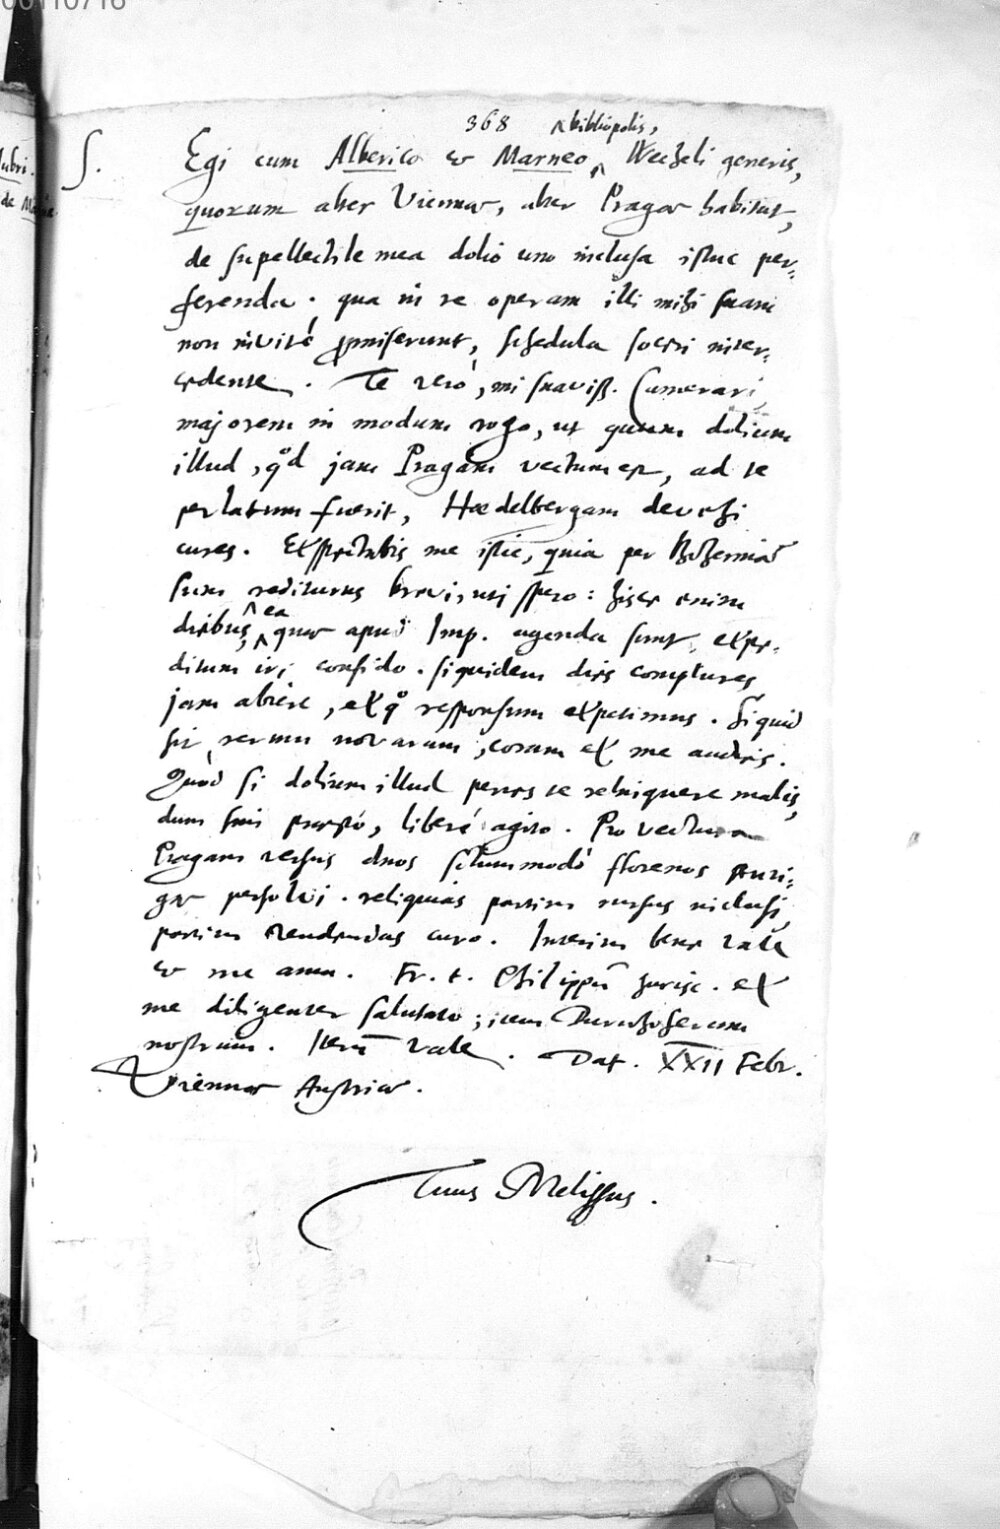 00110716
368 bibliopolis,
S. Egi cum Alberico et Marneo, Wecheli generis,
quorum alter Viennæ, alter Pragæ habitat,
de supellectile mea dolio uno inclusa istuc per-
ferenda. qua in re operam illi mihi suam
non invité promiserunt, schedula soceri inter-
cedente. Te verò, mi suaviss. Camerari,
majorem in modum rogo, ut quum dolium
illud, qd jam Pragam vectum est, ad te
perlatum fuerit, Haedelbergam devehi
cures. Exspectabis me istic, quia per Bohemiā
sum rediturus brevi, uti spero: hisce enim
diebus, ea quæ apud Imp. agenda sunt, expe-
ditum iri confido. siquidem dies complures
jam abiere, ex qo responsum expetimus. Si quid
sit rerum novarum, coram ex me audies.
Quòd si dolium illud penes te relinquere malis,
dum, liberé agito. Pro vectura
Pragam versus duos solummodò florenos auri-
gæ persolvi. reliquias partim rursus inclusi,
partim vendendas curo. Interim bene vale
et me ama. Fr. t. Philippū jurisc. ex
me diligenter salutato; item Durnhoferum
nostrum. Iterū vale. Dat. XXII Febr.
Viennæ Austriæ.
Tuus Melissus.